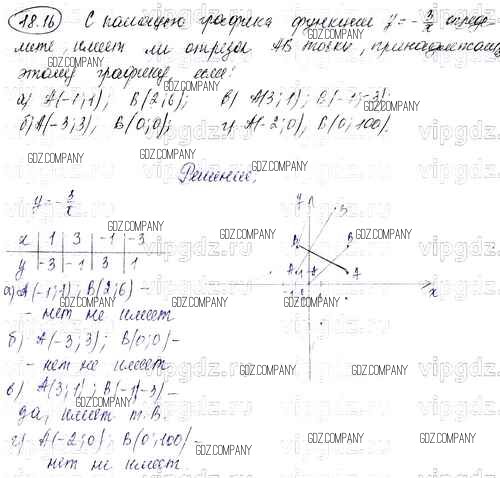 18.16 С помощью графика функции y = -3/x опреде-
лите, имеет ли отрезок AB точки, принадлежащие
этому графику, если:
а) A(-1; 1); B(2; 6); в) A(3; 1); B(-1; -3);
б) A(-3; 3), B(0; 0); г) A(-2; 0), B(0; 100).
Решение:
y = -3/x
x 1 3 -1 -3
y -3 -1 3 1
а) A(-1; 1); B(2; 6) -
- нет не имеет
б) A(-3; 3); B(0; 0) -
- нет не имеет
в) A(3; 1); B(-1; -3) -
да, имеет т. B.
г) A(-2; 0); B(0; 100) -
нет не имеет
y
B
B
A
A
x
GDZ.COMPANY
vipgdz.ru